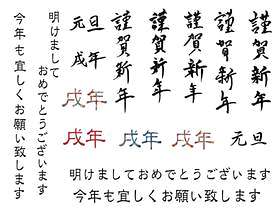 謹賀新年
謹賀新年
謹賀新年
謹賀新年
謹賀新年
元旦
戌年
明けまして
おめでとうございます
今年も宜しくお願い致します
戌年
戌年
戌年
戌年
元旦
明けましておめでとうございます
今年も宜しくお願い致します